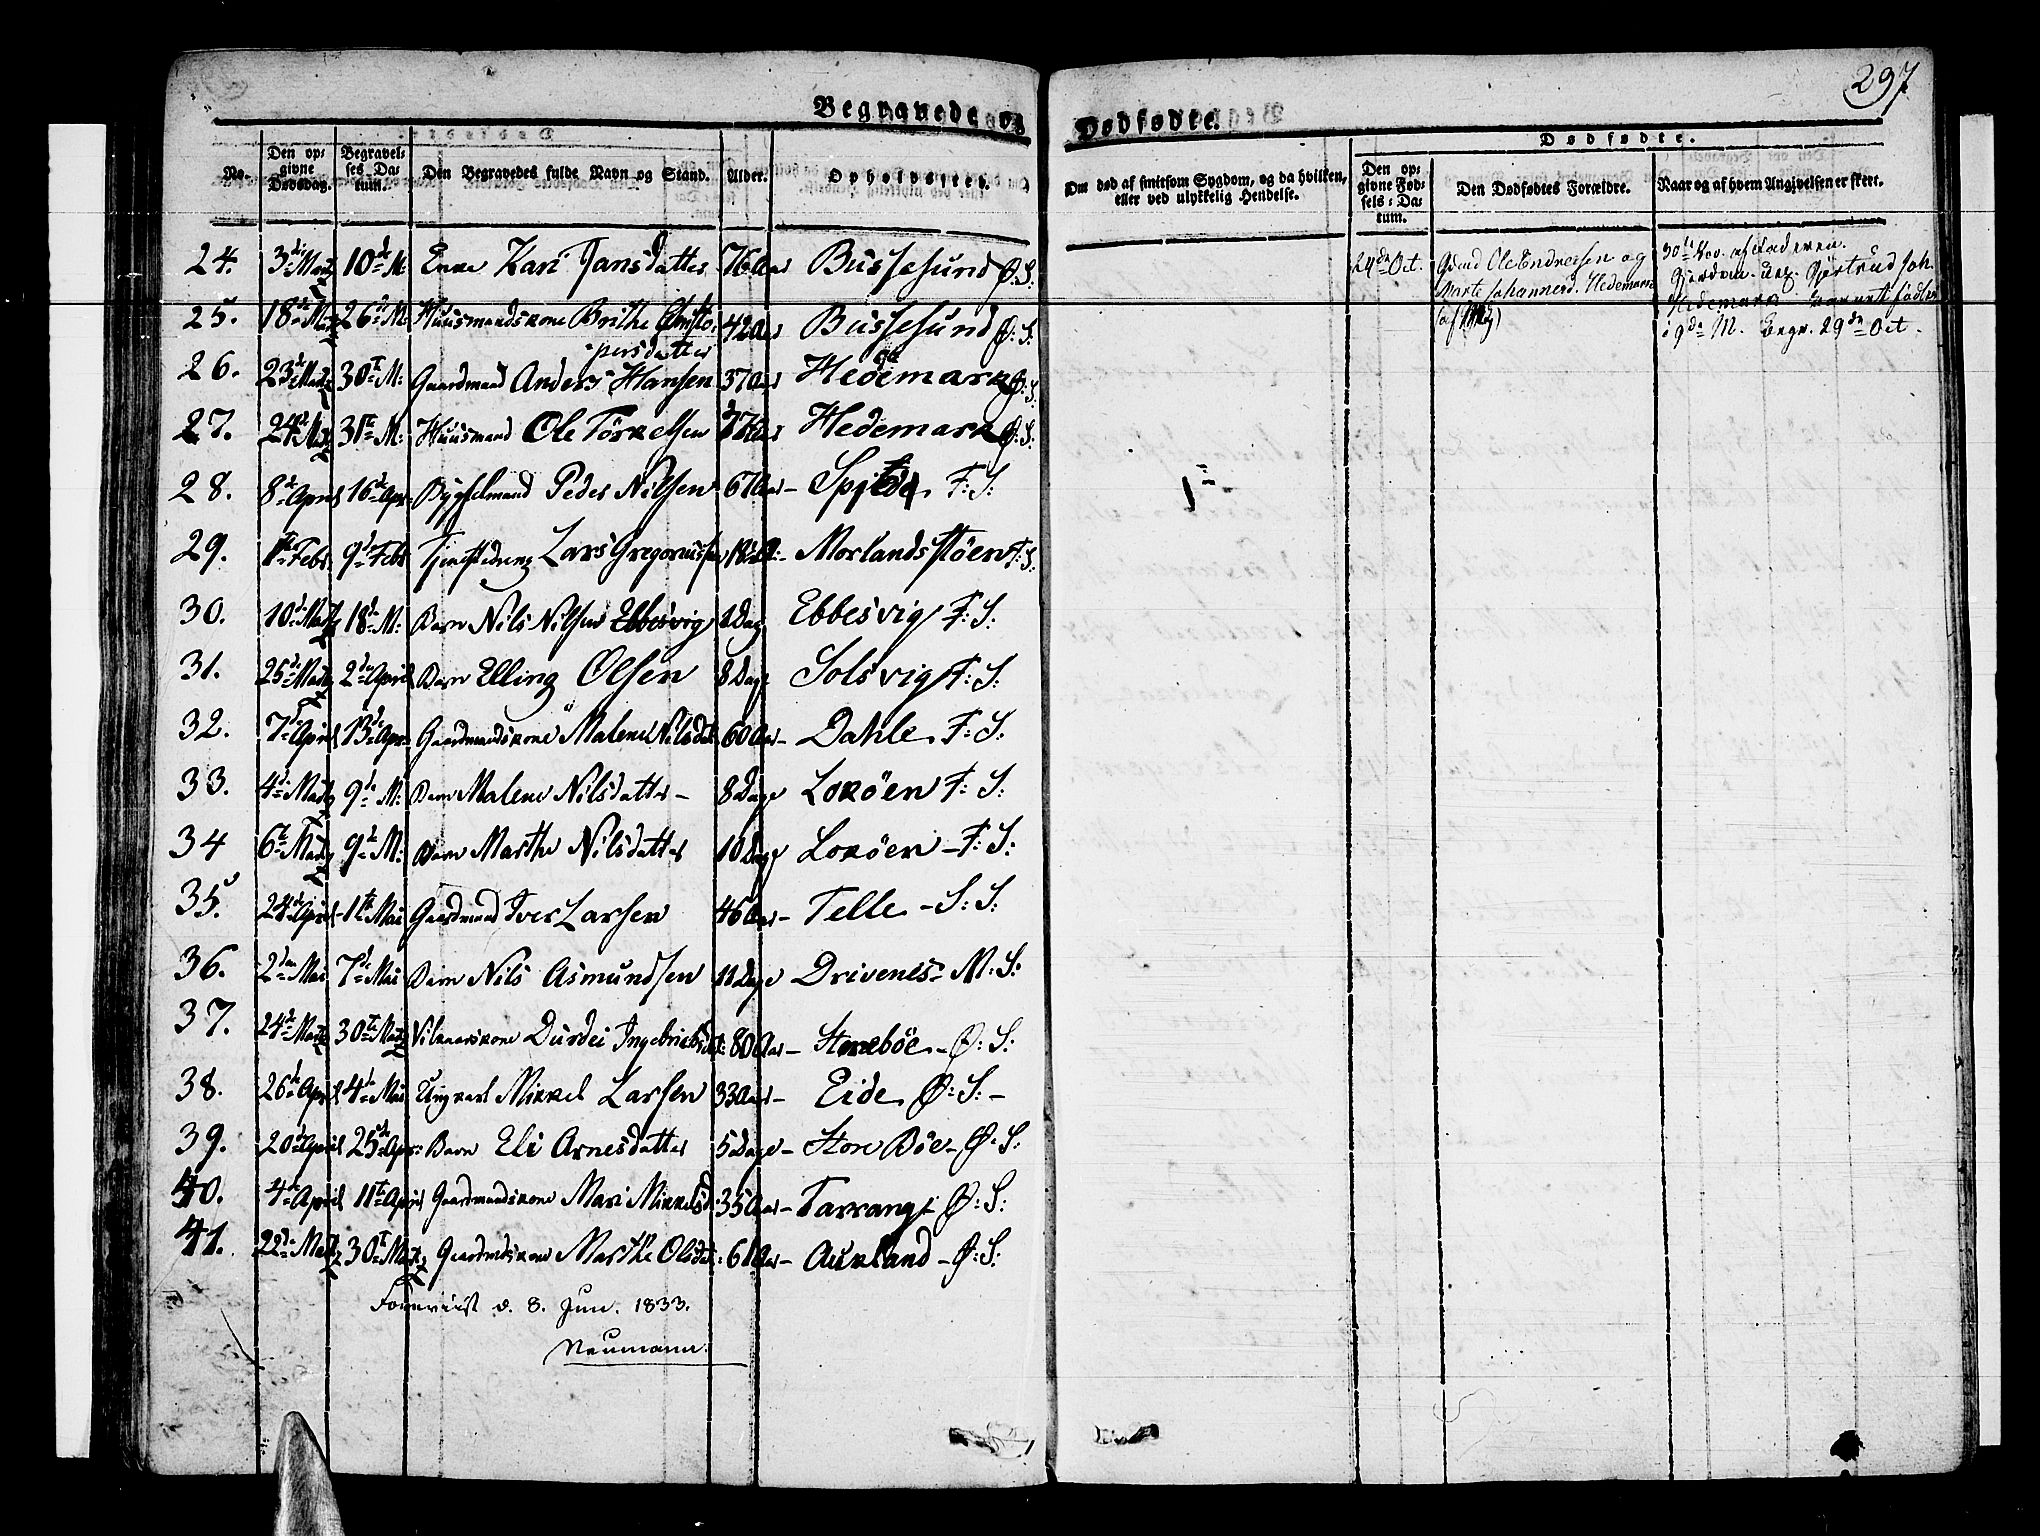 297
Begravede og Dødfødte.
Dødfødte.
No.
Den opgivne Dødsdag.
Begravelses Datum.
Den Begravedes fulde Navn og Stand.
Alder.
Opholdssted.
Om død af smitsom Sygdom, og da hvilken, eller ved ulykkelig Hendelse.
Den opgivne Fødsels-Datum.
Den Dødfødtes Forældre.
Naar og af hvem Angivelsen er skeet.
24. 3de Martz 10de M: Enke Kari Jansdatter 76 Aar Bussesund Ø: S:
25. 18de Martz 26de M: Huusmandskone Brithe Christo-
persdatter 42 Aar Bussesund Ø: S:
26. 23de Martz 30te M: Gaardmand Anders Hansen 37 Aar Hedemark Ø: S:
27. 24de Martz 31te M: Huusmand Ole Torkelsen 77 Aar Hedemark Ø: S:
28. 8de April 16de Apr: Bygselmand Peder Nilsen 67 Aar – F: S:
29. 1te Febr. 9de Febr Tjenestedreng Lars Gregoriussen 18 A: – Morlandsstøen F: S:
30. 10de Martz 18de M: Barn Nils Nilsen Ebbesvig 1 Dag Ebbesvig F: S:
31. 25de Martz 2den April Barn Elling Olsen 8 Dage Solsvig F: S:
32. 7de April 13de Apr: Gaardmandskone Malene Nilsdat: 60 Aar – Dahle F: S:
33. 4de Martz 9de M: Barn Malene Nilsdatter – 8 Dage Lokøen F: S:
34 6te Martz 9de M: Barn Marthe Nilsdatter 10 Dage Lokøen – F: S:
35. 24de April 1te Mai Gaardmand Iver Larsen 46 Aar – Telle – S: S:
36. 2den Mai 7de Mai Barn Nils Asmundsen 11 Dage Drivenes – M: S:
37. 24de Martz 30te Martz Vilkaarskone Durdei Ingebrigtsdat: 80 Aar – Storebøe – Ø: S:
38. 26de April 4de Mai Ungkarl Mikkel Larsen 33 Aar – Eide Ø: S: –
39. 20de April 25de Apr: Barn Eli Arnesdatter 5 Dage – Store Bøe – Ø: S:
40. 4de April 11te April Gaardmandskone Mari Mikkelsd: 35 Aar – Tarrang: Ø: S:
41. 22de Martz 30te Martz Gaardmdskone Marthe Olsdat: 61 Aar – Aukland – Ø: S:
Foreviist d. 8. Jun. 1833.
Neumann.
24de Oct.
Gmd Ole Endresen og
Marte Johannesd. Hedemark
30te Nov. af Faderen.
Gjordem. Enk. Gjertrud Joh.
Hedemark Barnet födt
i 9de M. Begr. 29de Oct.